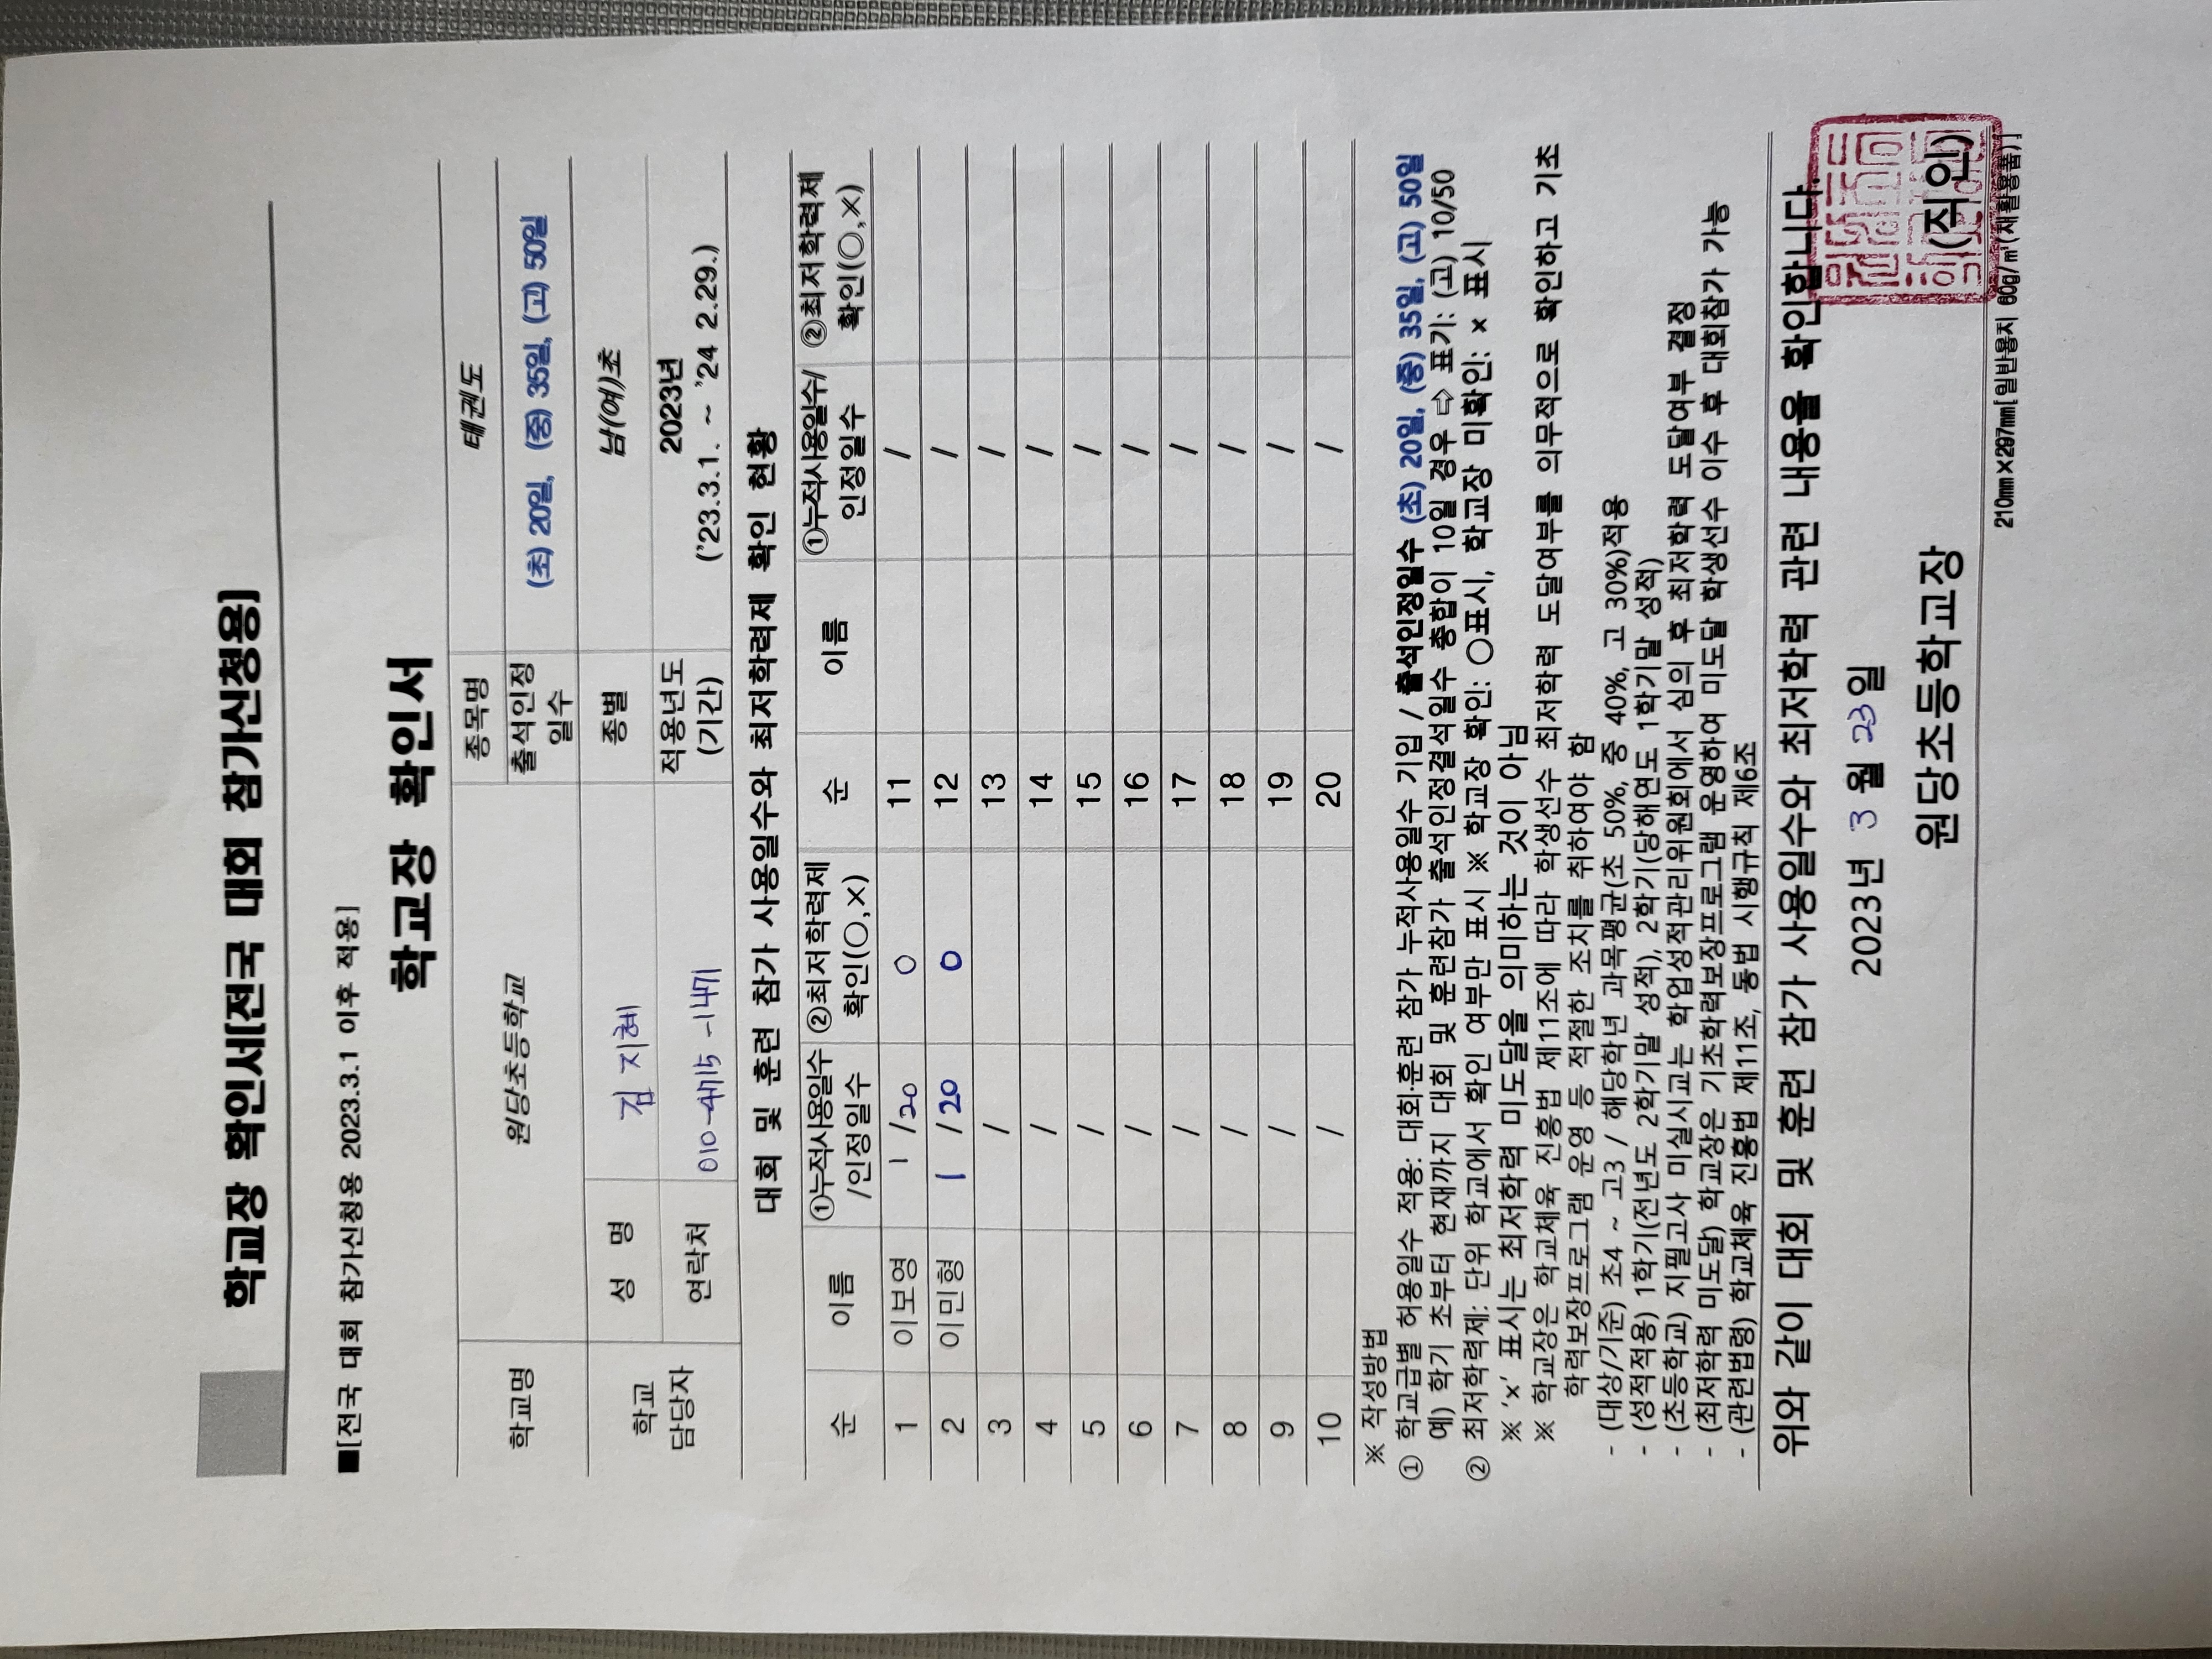 학교장 확인서[전국 대회 참가신청용]
■[전국 대회 참가신청용 2023.3.1 이후 적용]
학교장 확인서
학교명 원당초등학교 종목명 태권도
출석인정 일수 (초) 20일, (중) 35일, (고) 50일
학교 담당자 성 명 김지혜 종별 남(여)초
연락처 010-4715-1471 적용년도 (기간) 2023년 ('23.3.1. ~ '24 2.29.)
대회 및 훈련 참가 사용일수와 최저학력제 확인 현황
순 이름 ①누적사용일수 /인정일수 ②최저학력제 확인(○,×) 순 이름 ①누적사용일수/ 인정일수 ②최저학력제 확인(○,×)
1 이보영 1 /20 ○ 11 /
2 이민형 1 /20 ○ 12 /
3 / 13 /
4 / 14 /
5 / 15 /
6 / 16 /
7 / 17 /
8 / 18 /
9 / 19 /
10 / 20 /
※ 작성방법
① 학교급별 허용일수 적용: 대회·훈련 참가 누적사용일수 기입 / 출석인정일수 (초) 20일, (중) 35일, (고) 50일
예) 학기 초부터 현재까지 대회 및 훈련참가 출석인정결석일수 총합이 10일 경우 ⇨ 표기: (고) 10/50
② 최저학력제: 단위 학교에서 확인 여부만 표시 ※ 학교장 확인: ○표시, 학교장 미확인: × 표시
※ 'x' 표시는 최저학력 미도달을 의미하는 것이 아님
※ 학교장은 학교체육 진흥법 제11조에 따라 학생선수 최저학력 도달여부를 의무적으로 확인하고 기초
학력보장프로그램 운영 등 적절한 조치를 취하여야 함
- (대상/기준) 초4 ~ 고3 / 해당학년 과목평균(초 50%, 중 40%, 고 30%)적용
- (성적적용) 1학기(전년도 2학기말 성적), 2학기(당해연도 1학기말 성적)
- (초등학교) 지필고사 미실시교는 학업성적관리위원회에서 심의 후 최저학력 도달여부 결정
- (최저학력 미도달) 학교장은 기초학력보장프로그램 운영하여 미도달 학생선수 이수 후 대회참가 가능
- (관련법령) 학교체육 진흥법 제11조, 동법 시행규칙 제6조
위와 같이 대회 및 훈련 참가 사용일수와 최저학력 관련 내용을 확인합니다.
2023년 3 월 23일
원당초등학교장 (직인)
210mm×297mm[일반용지 60g/㎡(재활용품)]